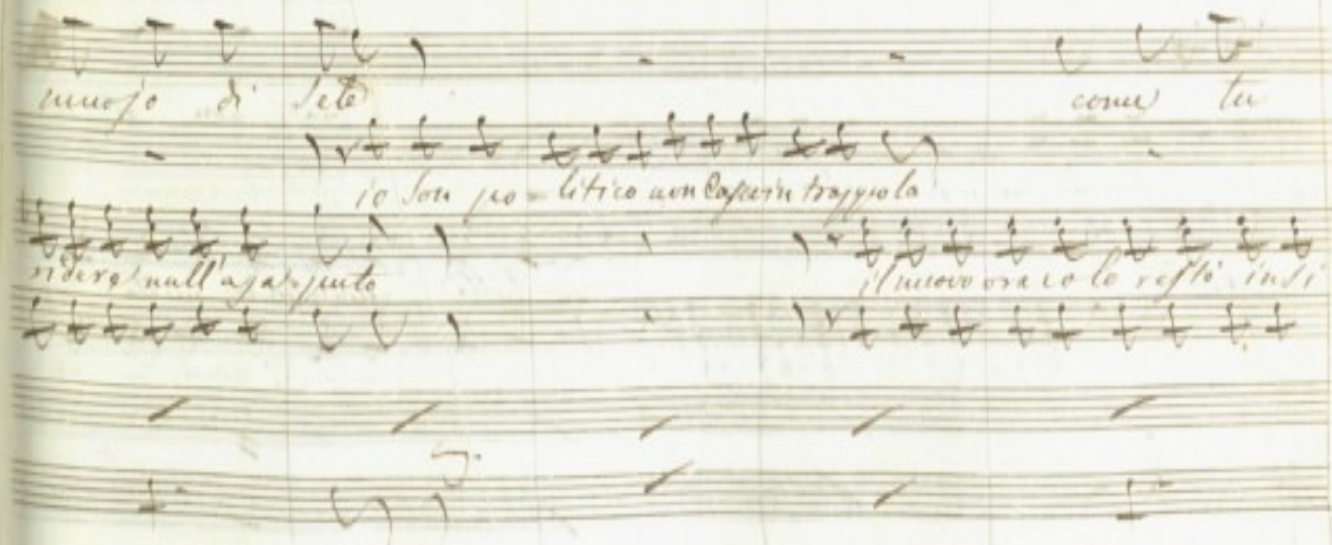 muojo di sete come tu
io son po=litico non casco in trappola
ridere null'a
il nuovo oracolo restò in si